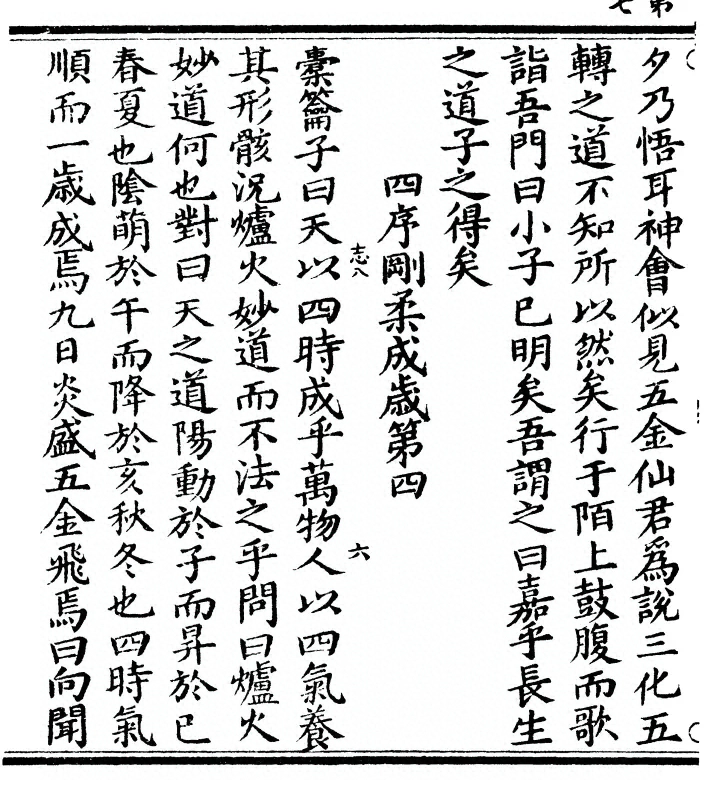 夕乃悟耳神會似見五金仙君爲說三化五
轉之道不知所以然矣行于陌上鼓腹而歌
詣吾門曰小子已明矣吾謂之曰嘉乎長生
之道子之得矣
四序剛柔成歲第四
橐籥子曰天以四時成乎萬物人以四氣養
志八
六
其形骸況爐火妙道而不法之乎問曰爐火
妙道何也對曰天之道陽動於子而昇於巳
春夏也陰萌於午而降於亥秋冬也四時氣
順而一歲成焉九日炎盛五金飛焉曰向聞